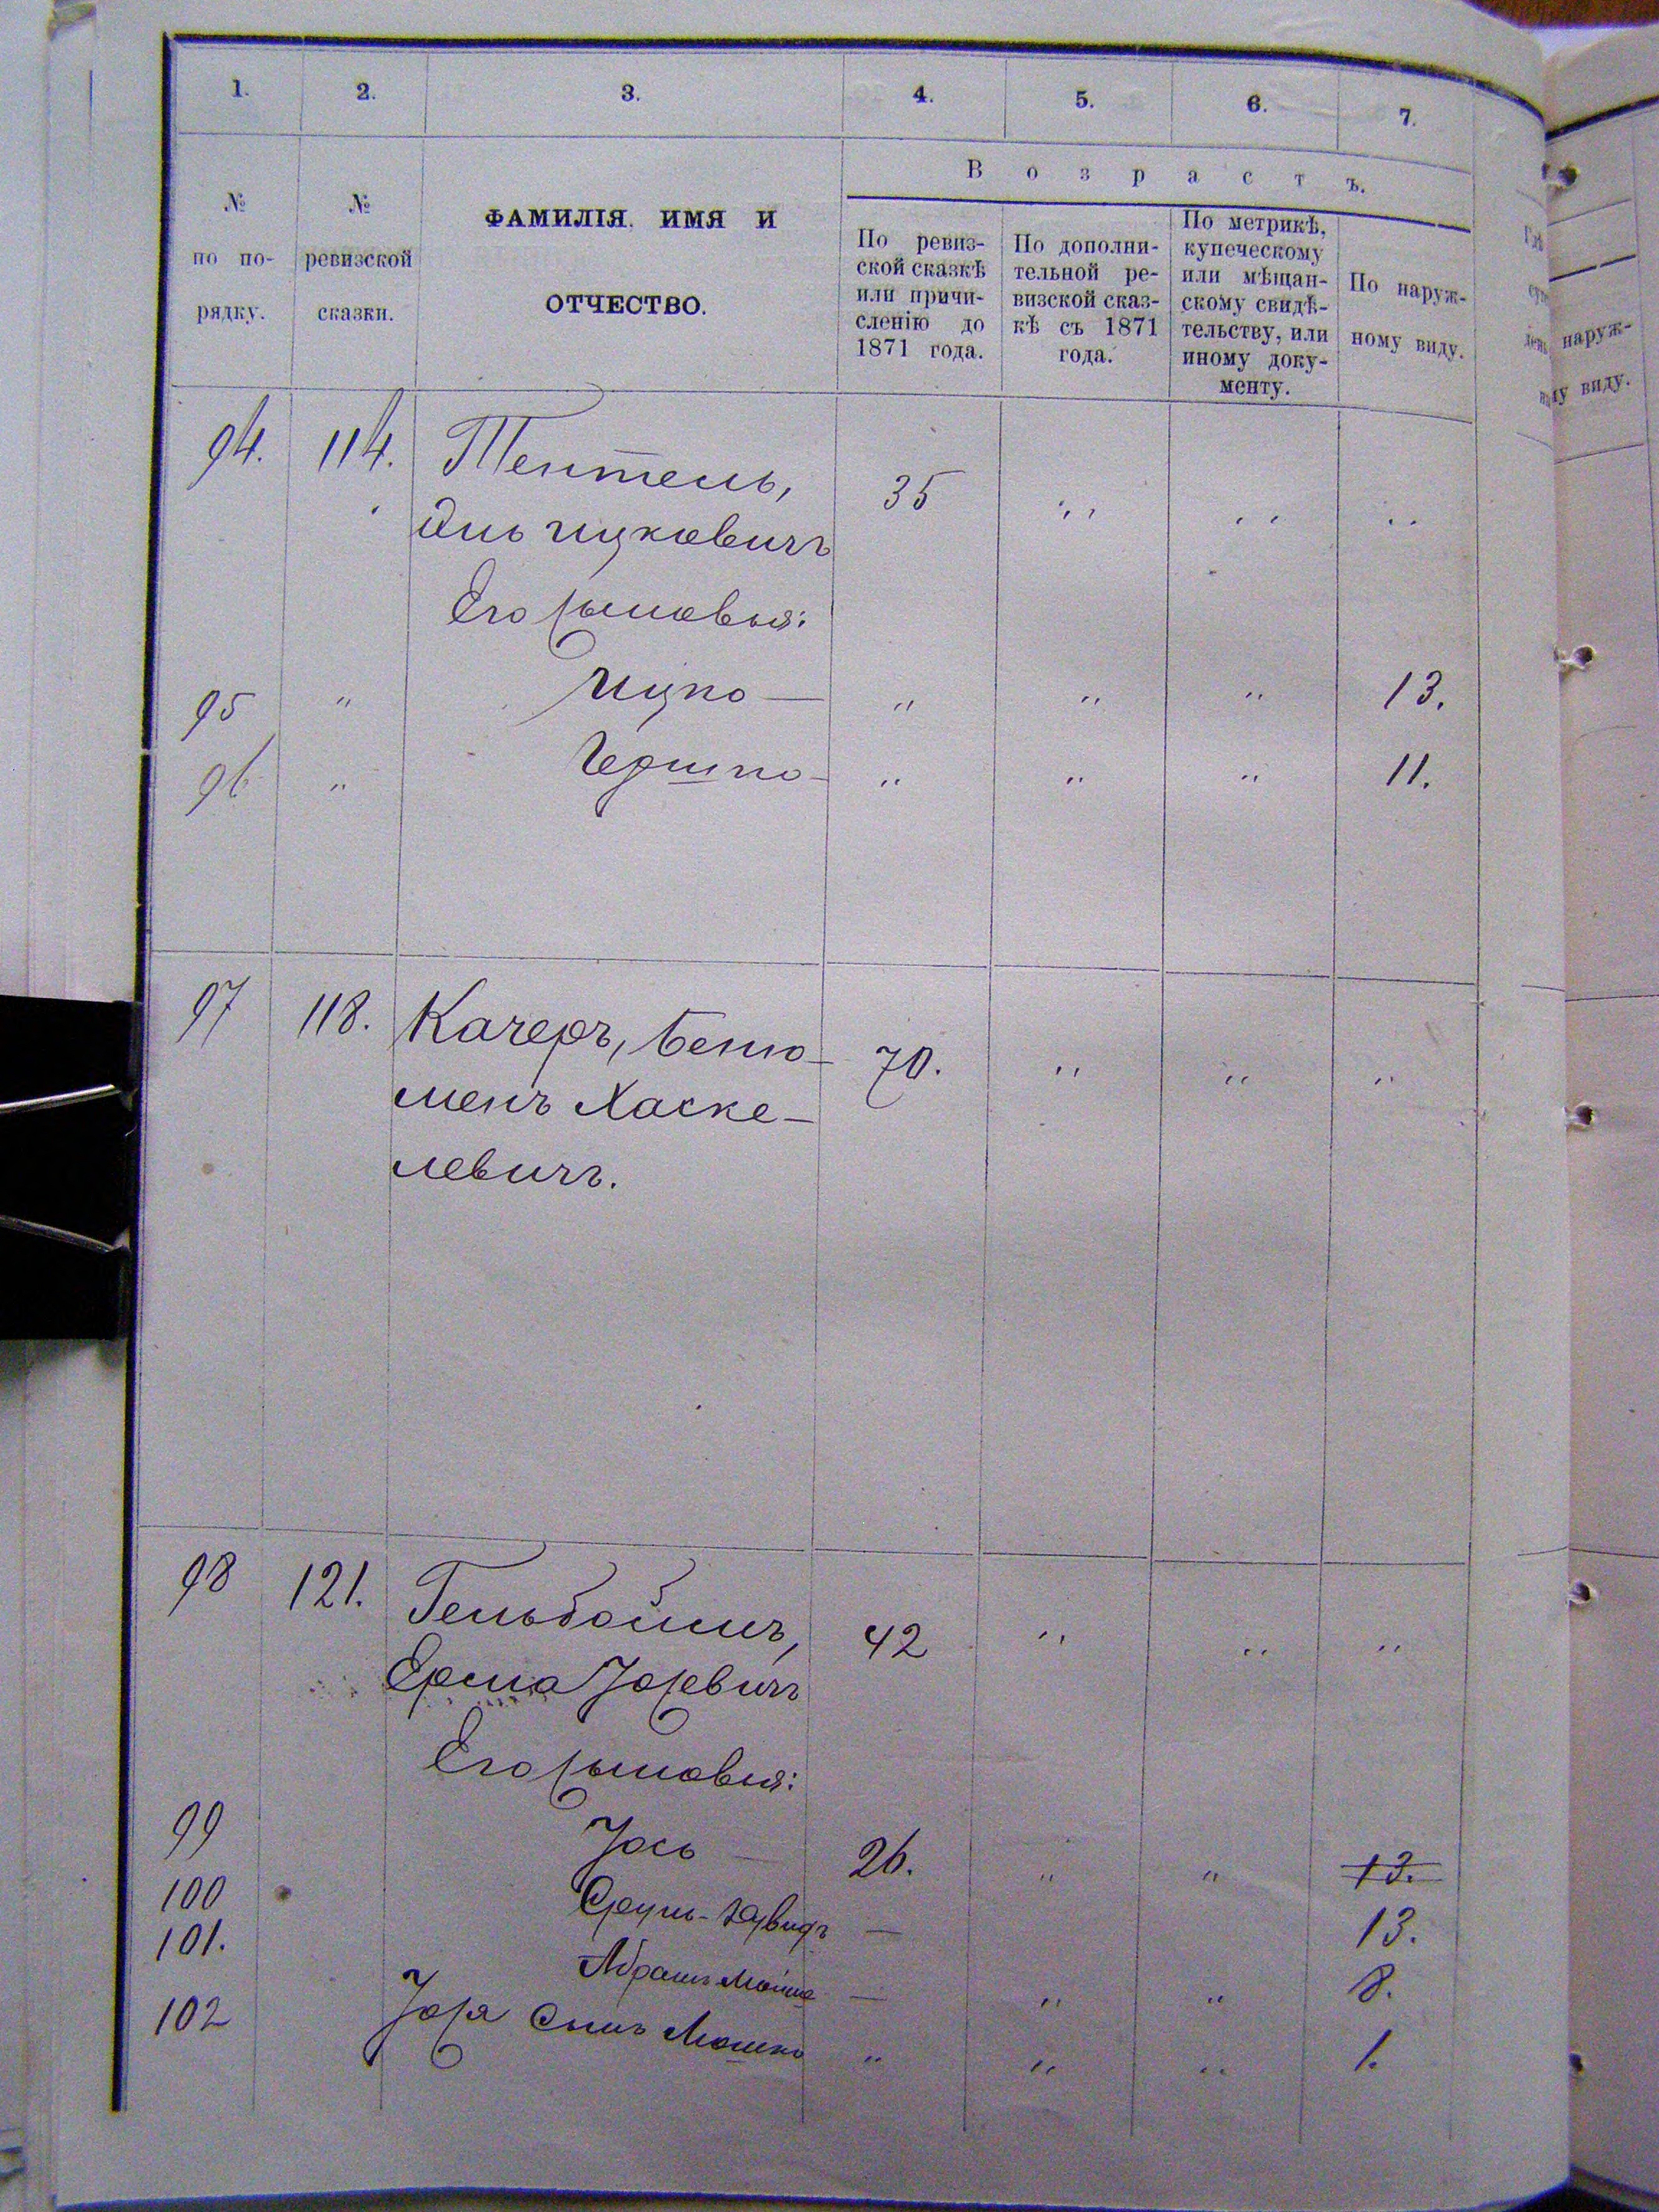 1. 2. 3. 4. 5. 6. 7.
В о з р а с т ъ.
№ по по- рядку.
№ ревизской сказки.
ФАМИЛІЯ, ИМЯ И
ОТЧЕСТВО.
По ревиз-
ской сказкѣ
или причи-
сленію до
1871 года.
По дополни-
тельной ре-
визской сказ-
кѣ съ 1871
года.
По метрикѣ,
купеческому
или мѣщан-
скому свидѣ-
тельству, или
иному доку-
менту.
По наруж-
ному виду.
94. 114. Тентель, 35 " " "
Ицковичъ
Его сыновья:
95 " Ицко — " " " 13.
96 " Гершко — " " " 11.
97 118. Качеръ, Беню- 70. " " "
менъ Хаске-
левичъ.
98 121. Гельбойшъ, 42 " " "
Ерма Іосевичъ
Его сыновья:
99 Іось — 26. " " 13.
100 Сруль-Давидъ — 13.
101. Абрамъ Мойше — " " 8.
102 Іося сынъ Мошко " " " 1.
наруж-
му виду.